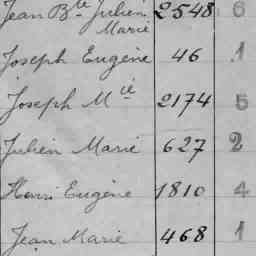 Jean Bte Julien 2548 6
Marie
Joseph Eugène 46 1
Joseph Mie 2174 5
Julien Marie 627 2
Henri Eugène 1810 4
Jean Marie 468 1